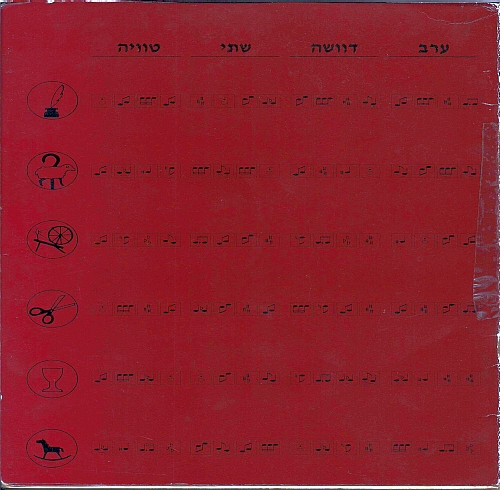 ערב דוושה שתי טוויה